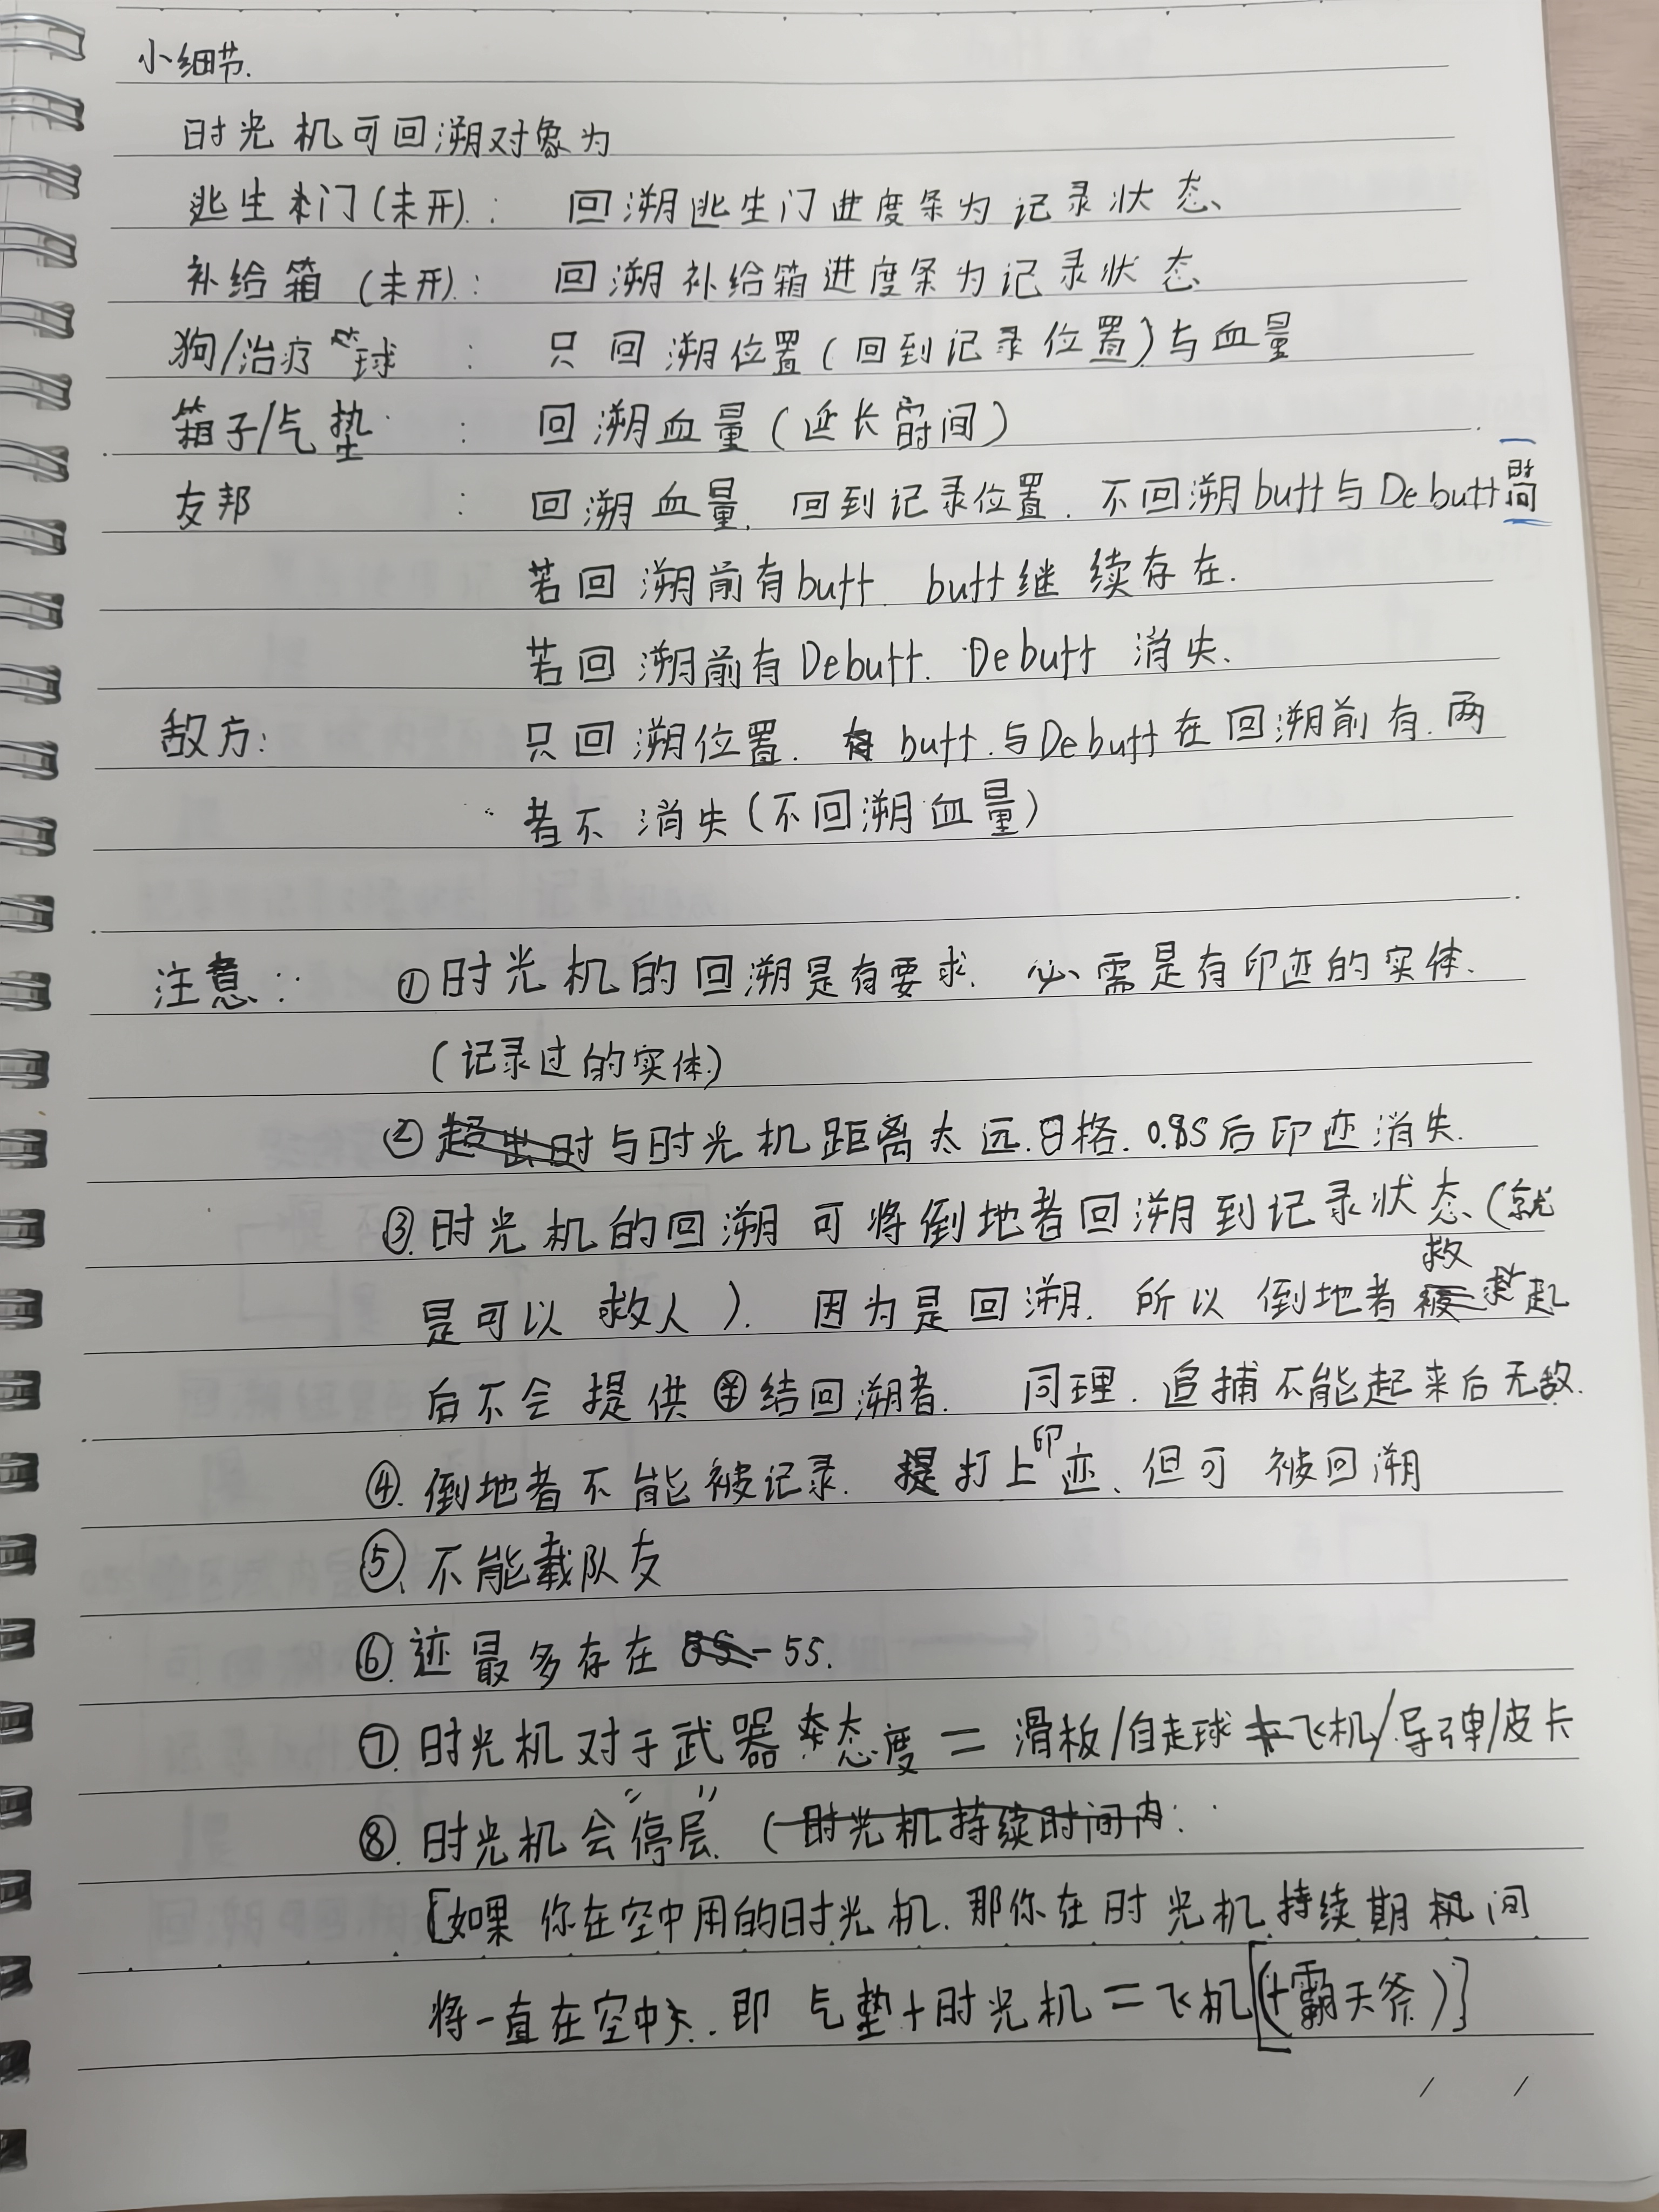 小细节.
时光机可回溯对象为
逃生门(未开): 回溯逃生门进度条为记录状态、
补给箱(未开): 回溯补给箱进度条为记录状态
狗/治疗球 : 只回溯位置(回到记录位置)与血量
箱子/气垫 : 回溯血量(延长时间)
友邦 : 回溯血量. 回到记录位置. 不回溯buff与Debuff时间
若回溯前有buff. buff继续存在.
若回溯前有Debuff. Debuff消失.
敌方: 只回溯位置. buff.与Debuff在回溯前有.两
者不消失(不回溯血量)
注意: ①时光机的回溯是有要求. 必需是有印迹的实体.
(记录过的实体)
②与时光机距离太远.8格.0.8S后印迹消失.
③.时光机的回溯可将倒地者回溯到记录状态(就
是可以救人). 因为是回溯. 所以倒地者救起
后不会提供 结回溯者. 同理.追捕不能起来后无敌.
④.倒地者不能被记录. 打上印迹、但可被回溯
⑤、不能载队友
⑥.迹最多存在 5S.
⑦.时光机对于武器态度=滑板/自走球 飞机/导弹/皮卡
⑧.时光机会"停层".(
[如果你在空中用的时光机.那你在时光机持续期间
将一直在空中.即气垫+时光机=飞机[(+霸天斧)]